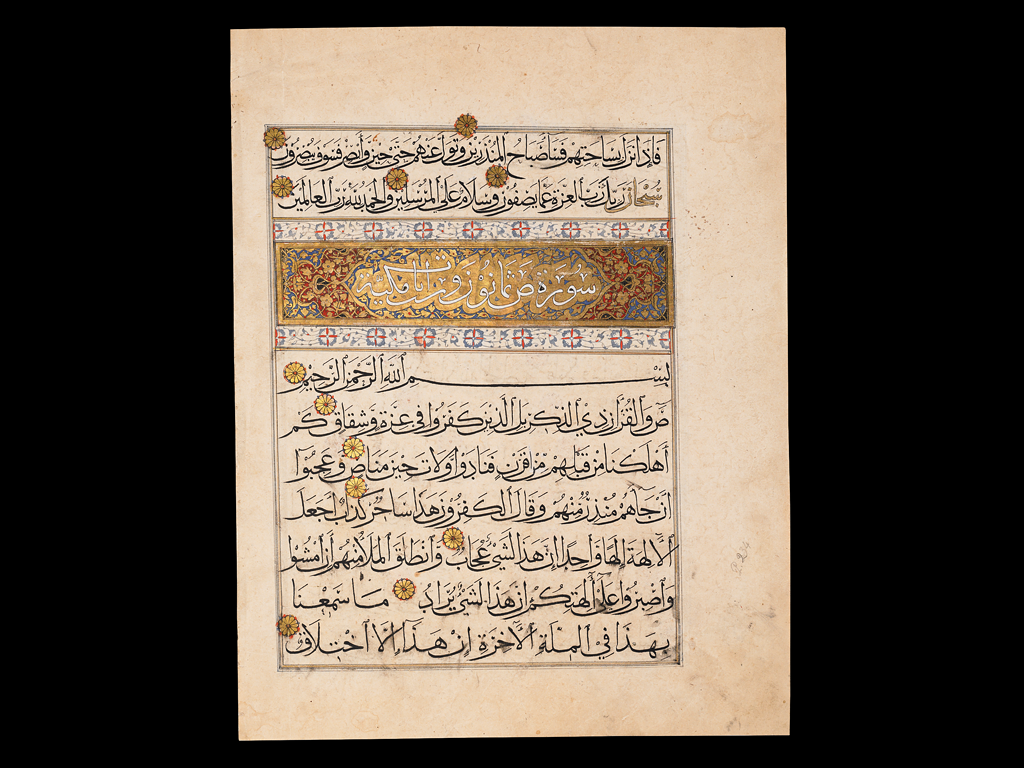 فَإِذَا نَزَلَ بِسَاحَتِهِمْ فَسَاءَ صَبَاحُ الْمُنْذَرِينَ وَتَوَلَّ عَنْهُمْ حَتَّى حِينٍ وَأَبْصِرْ فَسَوْفَ يُبْصِرُونَ
سُبْحَانَ رَبِّكَ رَبِّ الْعِزَّةِ عَمَّا يَصِفُونَ وَسَلَامٌ عَلَى الْمُرْسَلِينَ وَالْحَمْدُ لِلَّهِ رَبِّ الْعَالَمِينَ
سُورَة ص ثمانون وست ايات مكية
بِسْمِ اللَّهِ الرَّحْمَنِ الرَّحِيمِ
صَ وَالْقُرْآنِ ذِي الذِّكْرِ بَلِ الَّذِينَ كَفَرُوا فِي عِزَّةٍ وَشِقَاقٍ كَمْ
أَهْلَكْنَا مِنْ قَبْلِهِمْ مِنْ قَرْنٍ فَنَادَوْا وَلَاتَ حِينَ مَنَاصٍ وَعَجِبُوا
أَنْ جَاءَهُمْ مُنْذِرٌ مِنْهُمْ وَقَالَ الْكَافِرُونَ هَذَا سَاحِرٌ كَذَّابٌ أَجَعَلَ
الْآلِهَةَ إِلَهًا وَاحِدًا إِنَّ هَذَا لَشَيْءٌ عُجَابٌ وَانْطَلَقَ الْمَلَأُ مِنْهُمْ أَنِ امْشُوا
وَاصْبِرُوا عَلَى آلِهَتِكُمْ إِنَّ هَذَا لَشَيْءٌ يُرَادُ مَا سَمِعْنَا
بِهَذَا فِي الْمِلَّةِ الْآخِرَةِ إِنْ هَذَا إِلَّا اخْتِلَاقٌ